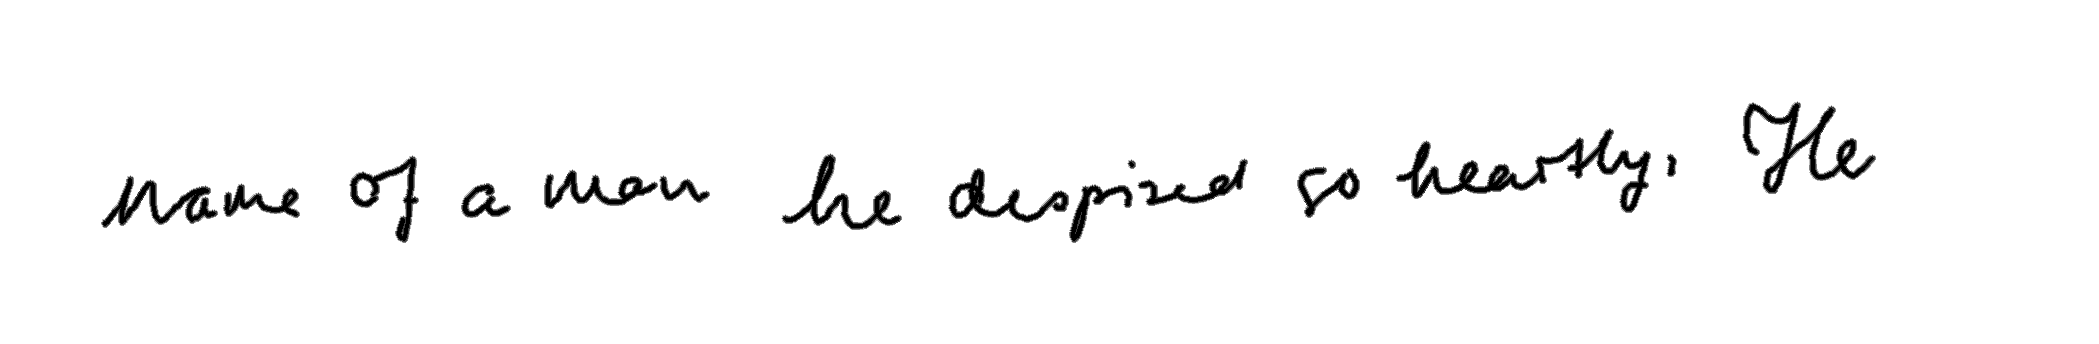 name of a man he despized so heartly. He